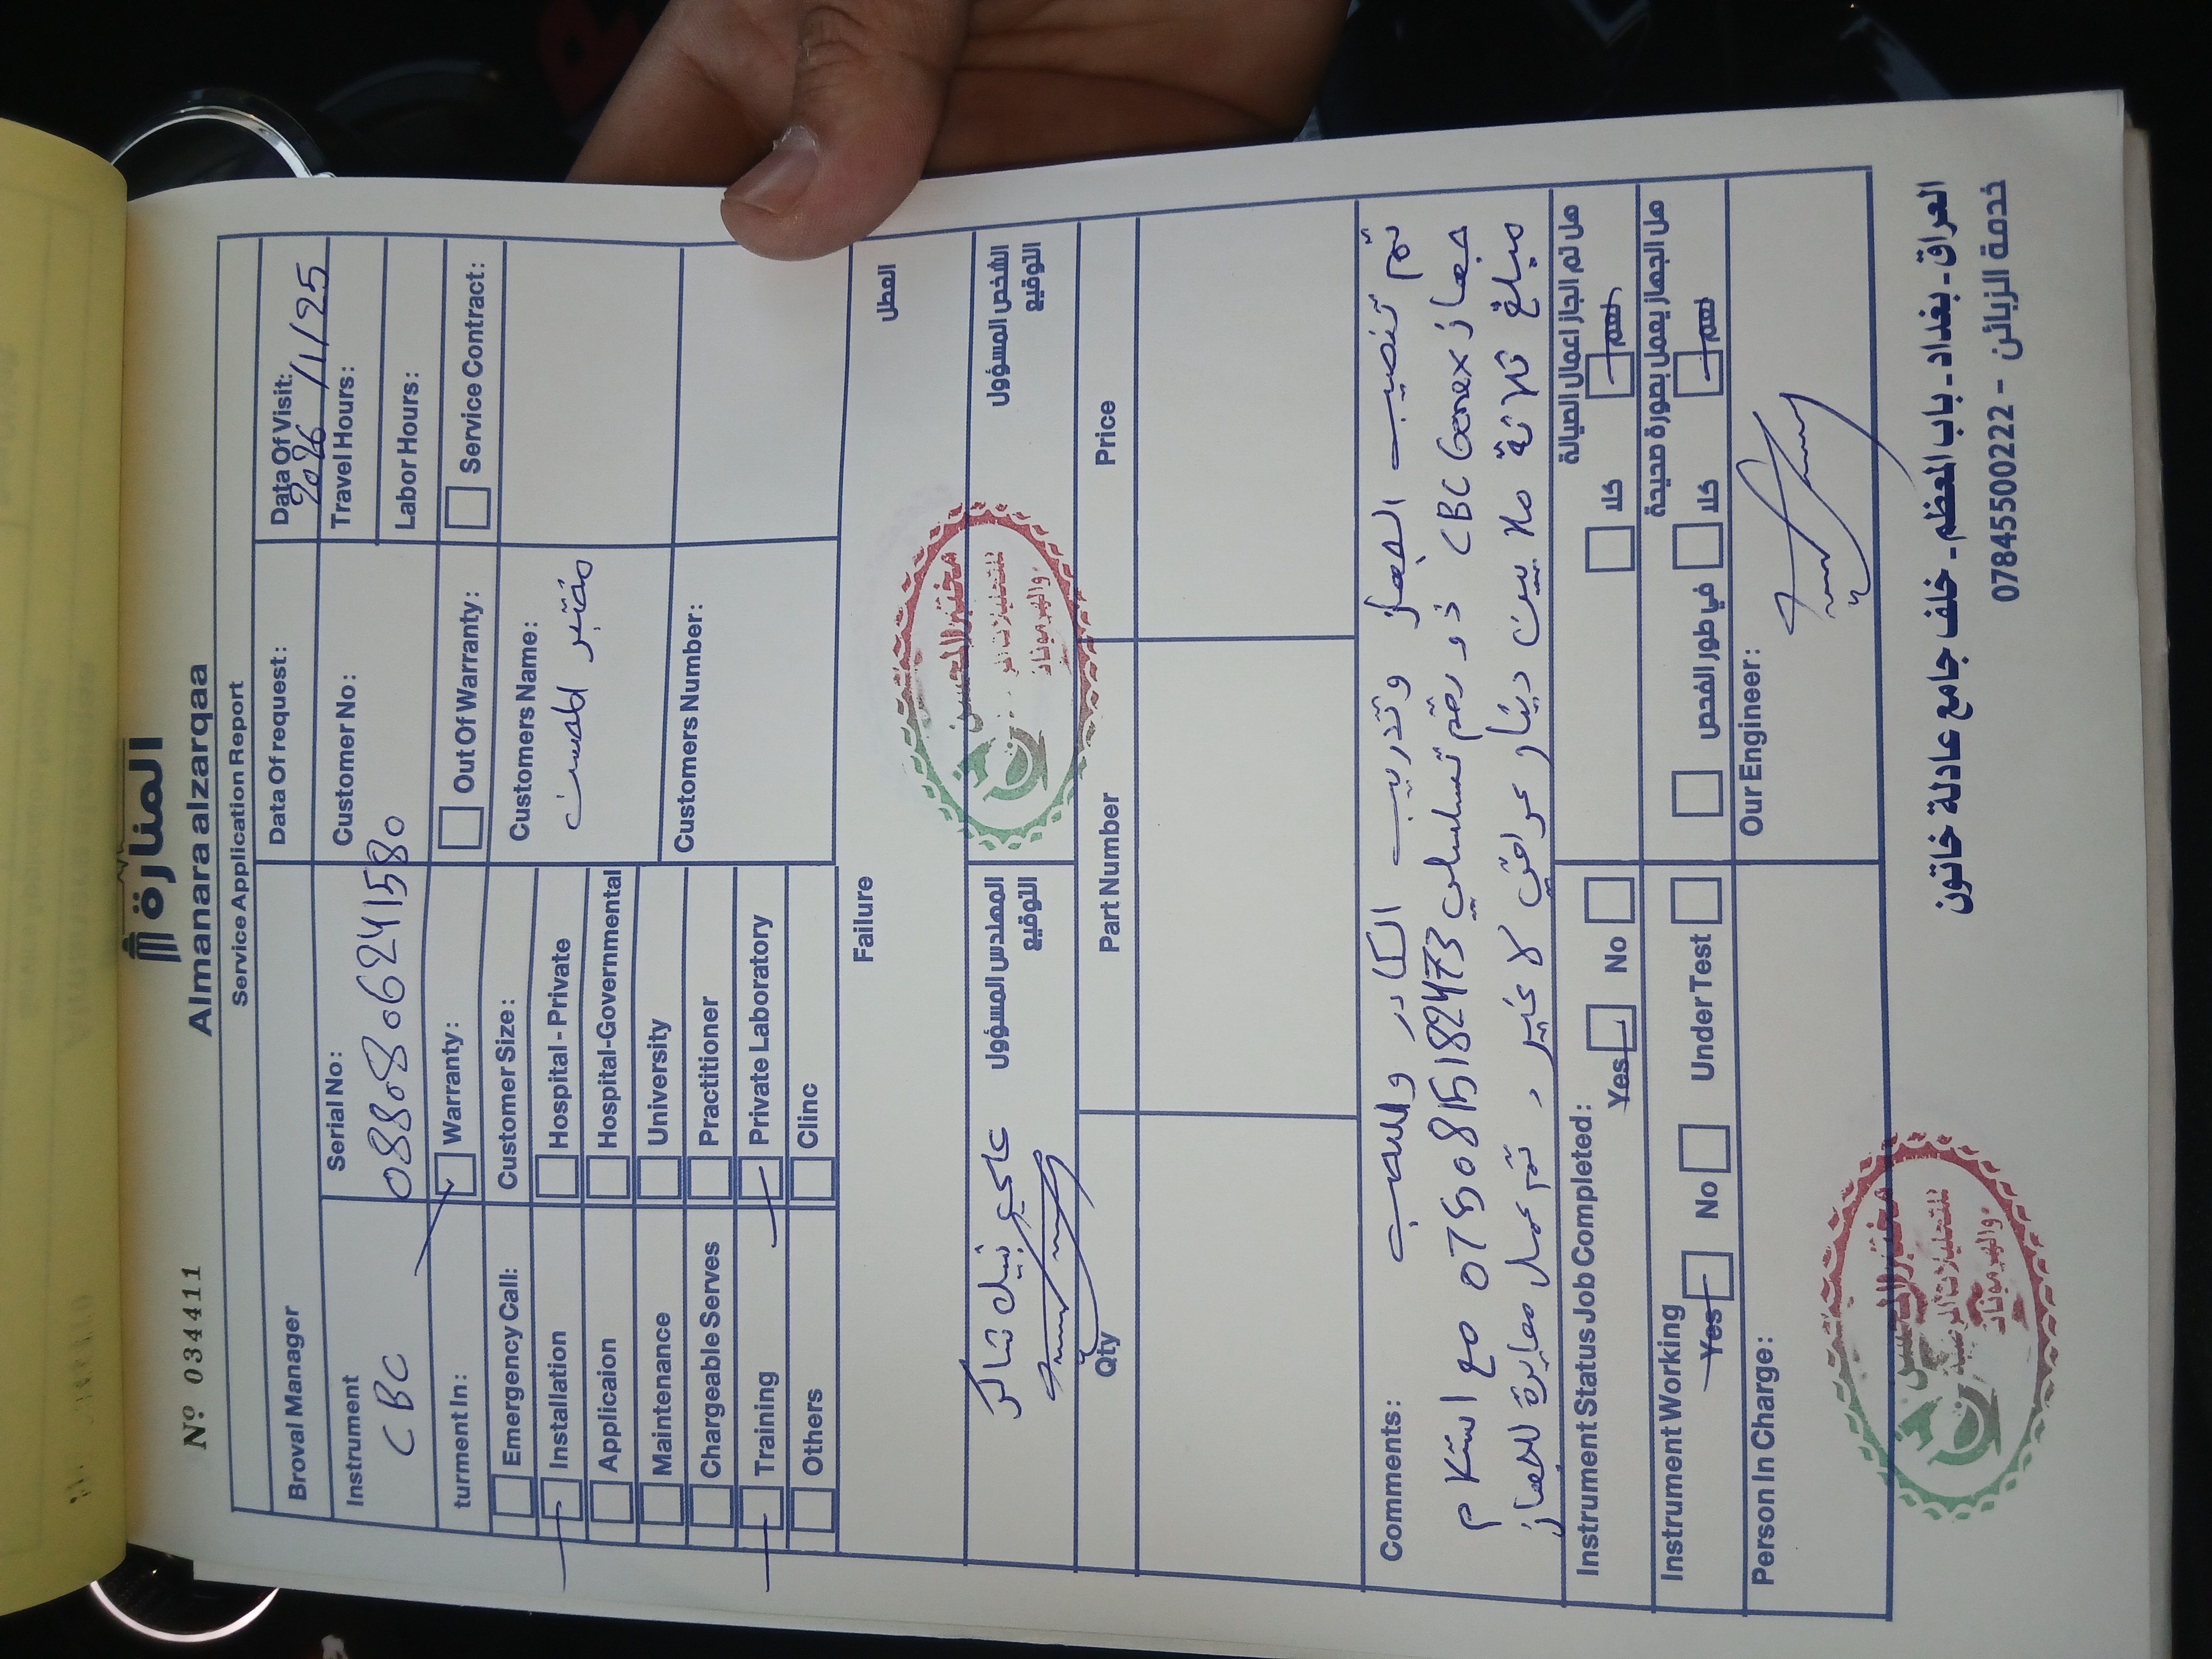 المنارة
Almanara alzarqaa
Nº 034411
Service Application Report
Broval Manager
Data Of request:
Data Of Visit:
2026/1/25
Instrument
CBC
Serial No:
0880806241580
Customer No:
Travel Hours:
Labor Hours:
turment In:
Warranty:
Out Of Warranty:
Service Contract:
Emergency Call:
Customer Size:
Customers Name:
مختبر المحسن
Installation
Hospital - Private
Applicaion
Hospital-Governmental
Maintenance
University
Customers Number:
Chargeable Serves
Practitioner
Training
Private Laboratory
Others
Clinc
Failure
العطل
علي نبيل شاكر
المهندس المسؤول
التوقيع
الشخص المسؤول
التوقيع
مختبر المحسن
للتحليلات المرضية
والهرمونات
Qty
Part Number
Price
Comments:
تم تنصيب الجهاز وتدريب الكادر والسحب
جهاز CBC Genex ذو رقم تسلسلي 0750815182473 مع استلام
مبلغ ثلاثة ملايين دينار عراقي لا غير، تم عمل معايرة للجهاز
Instrument Status Job Completed:
Yes
No
هل تم انجاز اعمال الصيانة
كلا
نعم
Instrument Working
Yes
No
Under Test
هل الجهاز يعمل بصورة صحيحة
في طور الفحص
كلا
نعم
Person In Charge:
Our Engineer:
مختبر المحسن
للتحليلات المرضية
والهرمونات
العراق - بغداد - باب المعظم - خلف جامع عادلة خاتون
خدمة الزبائن - 07845500222